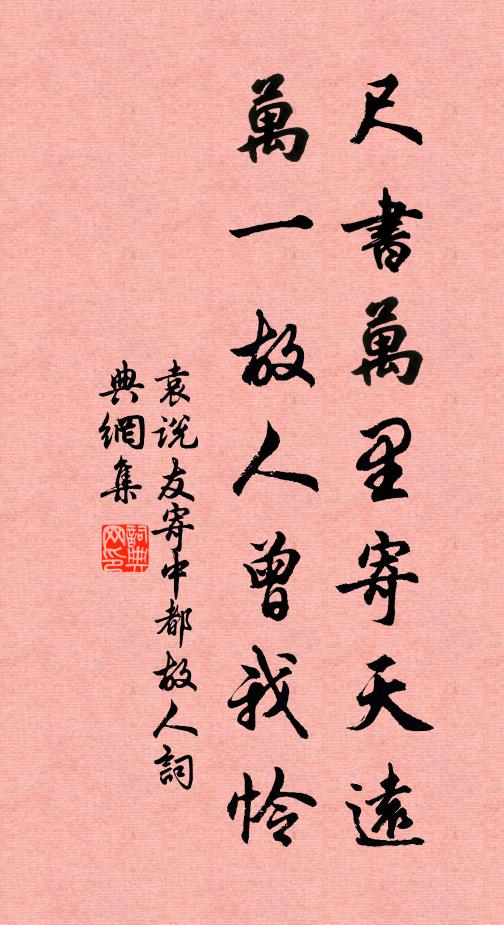 尺書萬里寄天遠
萬一故人曾我憐
袁説友寄中都故人詞
典網集
詞典网印